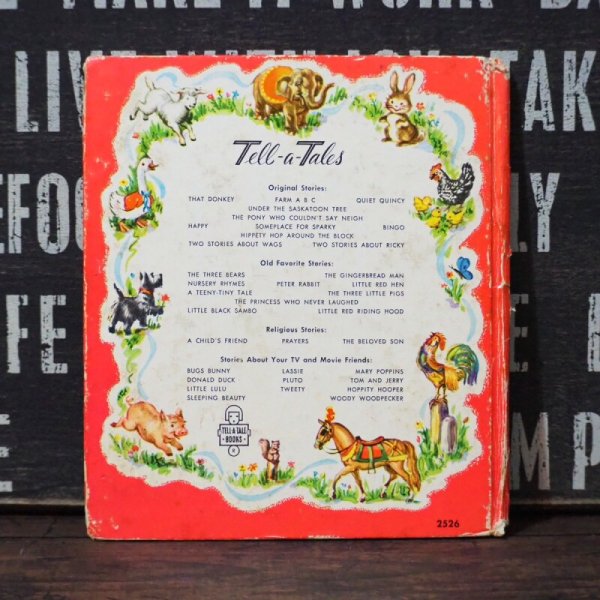 MAKE IT WORK
LIVE WITH JOY TAK
EFO LY
FE
E MP
Tell-a-Tales
Original Stories:
THAT DONKEY FARM A B C QUIET QUINCY
UNDER THE SASKATOON TREE
THE PONY WHO COULDN'T SAY NEIGH
HAPPY SOMEPLACE FOR SPARKY BINGO
HIPPETY HOP AROUND THE BLOCK
TWO STORIES ABOUT WAGS TWO STORIES ABOUT RICKY
Old Favorite Stories:
THE THREE BEARS THE GINGERBREAD MAN
NURSERY RHYMES PETER RABBIT LITTLE RED HEN
A TEENY-TINY TALE THE THREE LITTLE PIGS
THE PRINCESS WHO NEVER LAUGHED
LITTLE BLACK SAMBO LITTLE RED RIDING HOOD
Religious Stories:
A CHILD'S FRIEND PRAYERS THE BELOVED SON
Stories About Your TV and Movie Friends:
BUGS BUNNY LASSIE MARY POPPINS
DONALD DUCK PLUTO TOM AND JERRY
LITTLE LULU TWEETY HOPPITY HOOPER
SLEEPING BEAUTY WOODY WOODPECKER
TELL-A-TALE
BOOKS
®
2526